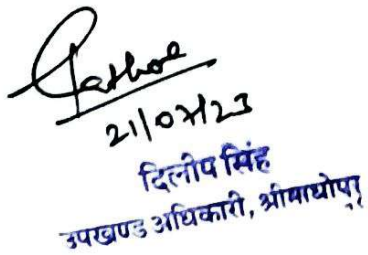 21/07/23
दिलीप सिंह
उपखण्ड अधिकारी, श्रीमाधोपुर